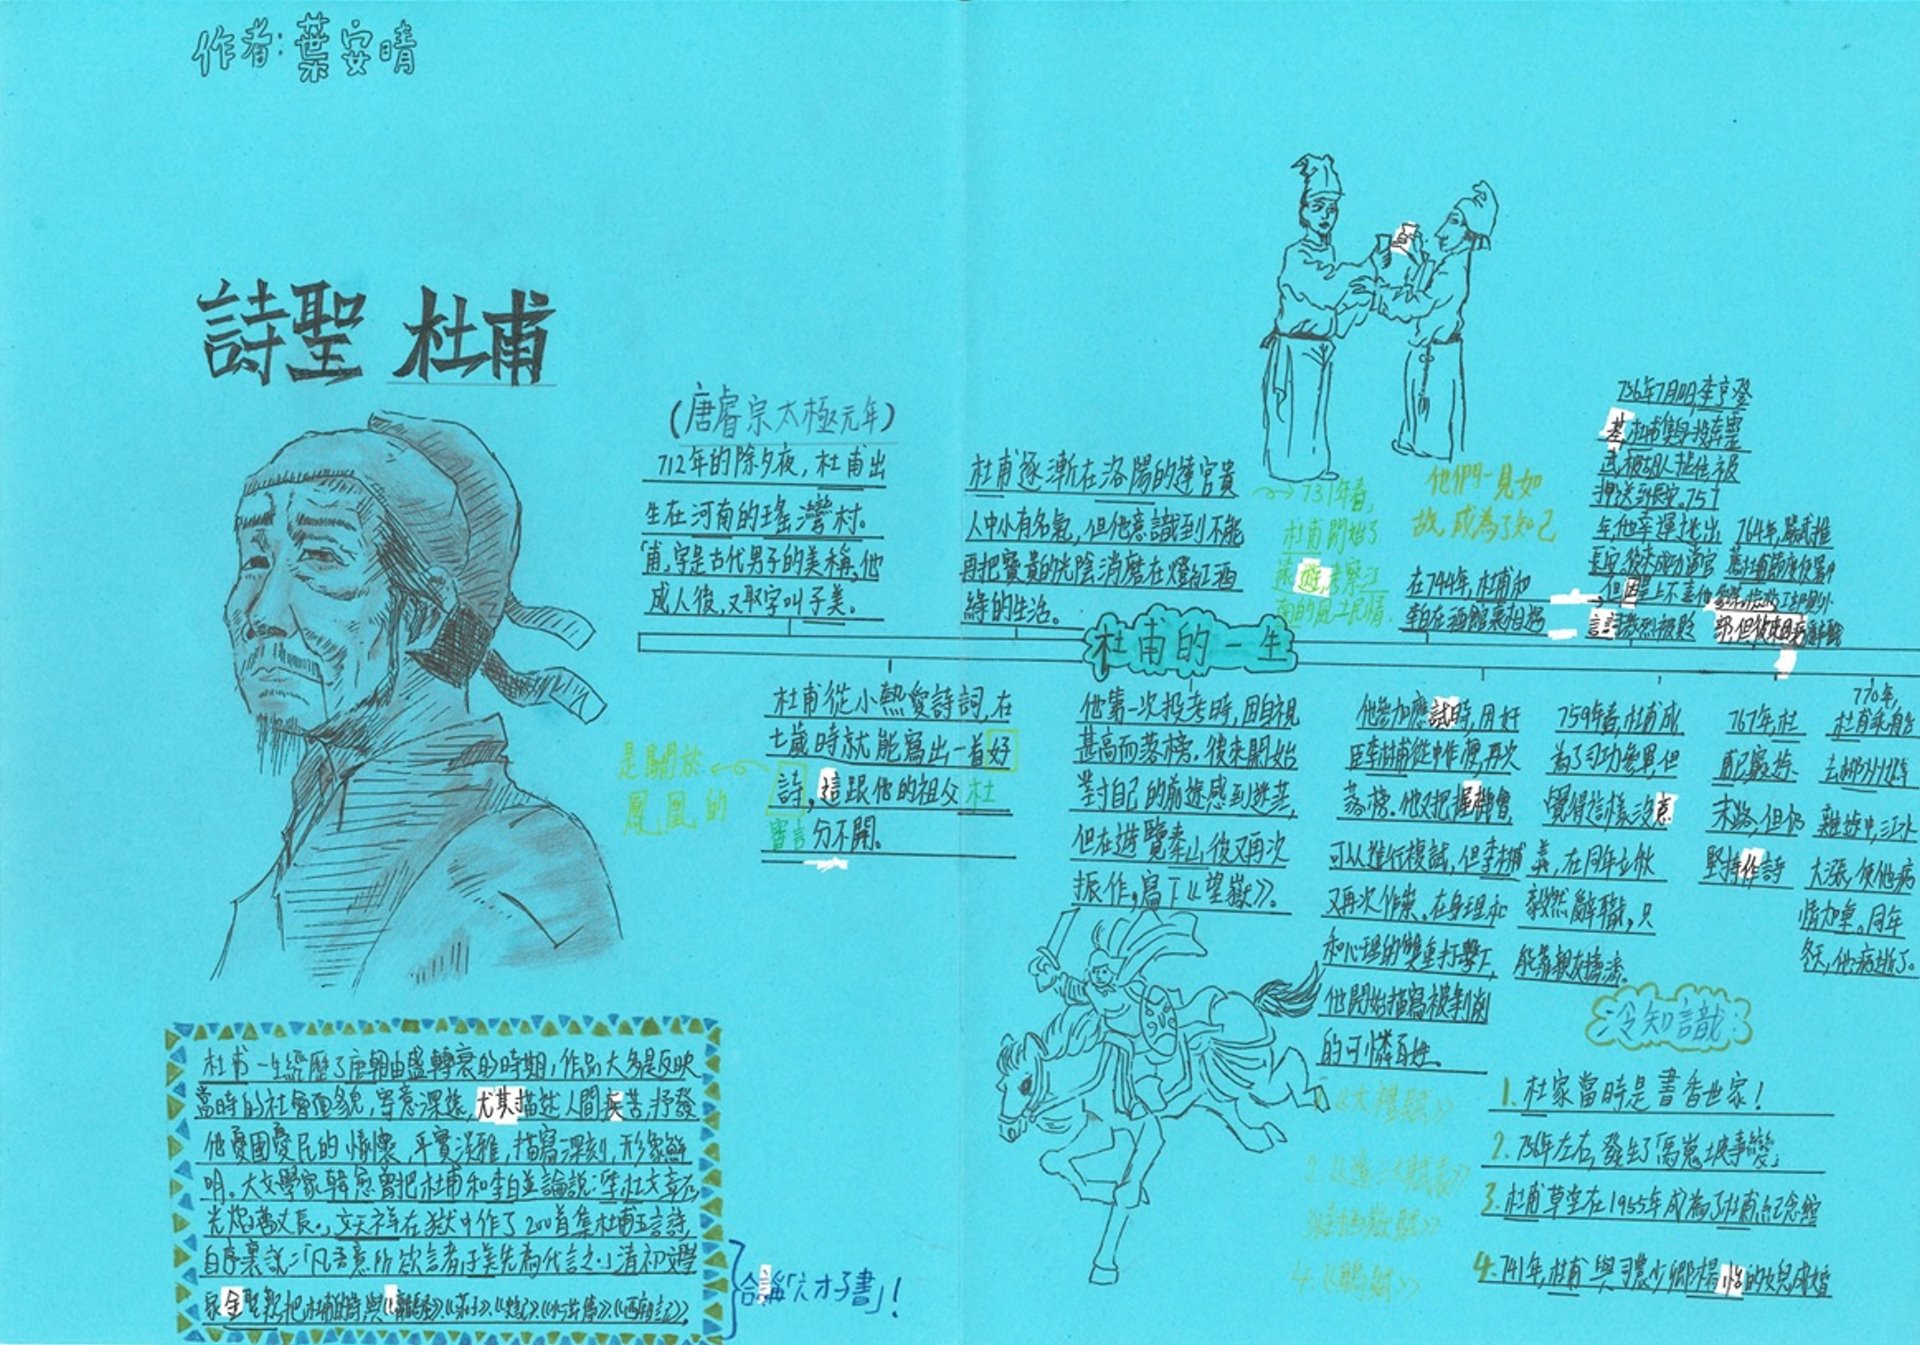 作者:葉安晴
詩聖 杜甫
(唐睿宗太極元年)
712年的除夕夜,杜甫出
生在河南的瑤灣村。
「甫」字是古代男子的美稱,他
成人後,又取字叫子美。
杜甫從小熱愛詩詞,在
七歲時就能寫出一首好
詩,這跟他的祖父杜
審言分不開。
是關於
鳳凰的
杜甫逐漸在洛陽的達官貴
人中小有名氣,但他意識到不能
再把寶貴的光陰消磨在燈紅酒
綠的生活。
杜甫的一生
731年春,
杜甫開始了
遠遊,考察江
南的風土民情.
他第一次投考時,因自視
甚高而落榜。後來開始
對自己的前途感到迷茫,
但在遊覽泰山後又再次
振作,寫下《望嶽》。
他們一見如
故,成為了知己
在744年,杜甫和
李白在酒館裏相遇
他參加應試時,因奸
臣李林甫從中作梗,再次
落榜。他又把握機會,
可以進行複試,但李林甫
又再次作祟。在身理和
和心理的雙重打擊下,
他開始描寫被剝削
的可憐百姓.
《大禮賦》
4.《鵰賦》
756年7月 李亨登
基,杜甫隻身投奔靈
武,被胡人捉住,被
押送到長安。757
年,他幸運逃出
長安。後來成功當官
759年春,杜甫成
為了司功參軍,但
覺得這樣沒意
義,在同年立秋
毅然辭職,只
能靠親友接濟。
764年,嚴武推
薦杜甫
767年,杜
甫已窮途
末路,但仍
堅持作詩
770年,
杜甫乘舟
去郴州
難途中,江水
大漲,使他病
情加重。同年
冬天,他病逝了。
冷知識:
1.杜家當時是書香世家!
2.756年左右,發生了「馬嵬坡事變」
3.杜甫草堂在1955年成為了杜甫紀念館
4.741年,杜甫與司農少卿楊怡的女兒成婚
杜甫一生經歷了唐朝由盛轉衰的時期,作品大多是反映
當時的社會面貌,寓意深遠,尤其描述人間疾苦,抒發
他憂國憂民的情懷,平實淡雅,描寫深刻,形象鮮
明。大文學家韓愈曾把杜甫和李白並論說:「李杜文章在,
光焰萬丈長。」文天祥在獄中作了200首集杜甫五言詩,
自序裏說:「凡吾意所欲言者,子美先為代言之」清初文學
家金聖歎把杜甫的詩與《離騷》、《莊子》、《史記》、《水滸傳》、《西廂記》,
合稱「六才子書」!